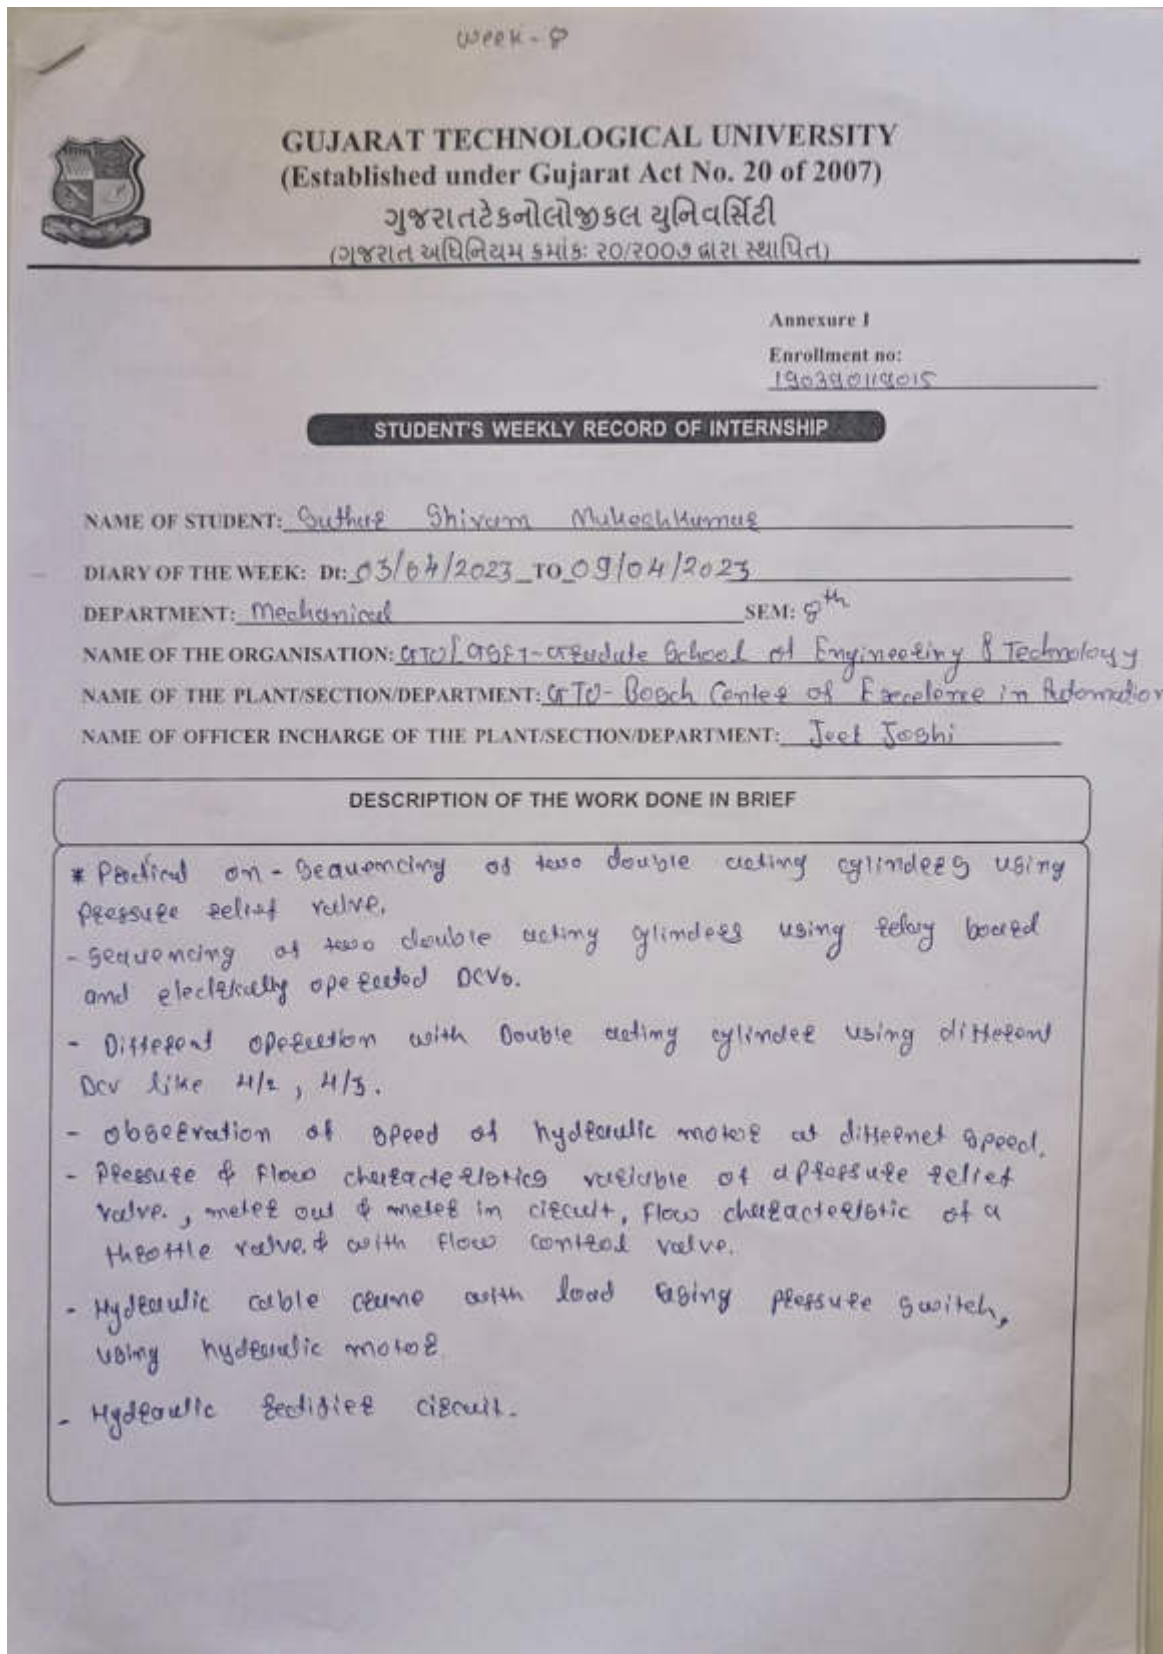 Week - 8
GUJARAT TECHNOLOGICAL UNIVERSITY
(Established under Gujarat Act No. 20 of 2007)
ગુજરાતટેકનોલોજીકલ યુનિવર્સિટી
(ગુજરાત અધિનિયમ ક્રમાંક: ૨૦/૨૦૦૭ દ્વારા સ્થાપિત)
Annexure I
Enrollment no:
190390119015
STUDENT'S WEEKLY RECORD OF INTERNSHIP
NAME OF STUDENT: Suthar Shivam Mukeshkumar
DIARY OF THE WEEK: Dt: 03/04/2023 TO 09/04/2023
DEPARTMENT: Mechanical SEM: 8th
NAME OF THE ORGANISATION: GTU GSET-Graduate School of Engineering & Technology
NAME OF THE PLANT/SECTION/DEPARTMENT: GTU- Bosch Center of Excelence in Automation
NAME OF OFFICER INCHARGE OF THE PLANT/SECTION/DEPARTMENT: Jeet Joshi
DESCRIPTION OF THE WORK DONE IN BRIEF
* Practical on - Sequencing of two double acting cylinders using
pressure relief valve.
- sequencing of two double acting glinders using relay board
and electrically operated DCVs.
- Different operation with Double acting cylinder using different
DCV like 4/2 , 4/3 .
- observation of speed of hydraulic motor at differnet speed.
- Pressure & Flow characteristics variable of a pressure relief
valve. , meter out & meter in circuit, flow characteristic of a
throttle valve. & with flow control valve.
- Hydraulic cable crane with load using pressure switch,
using hydraulic motor.
- Hydraulic rectifier circuit.